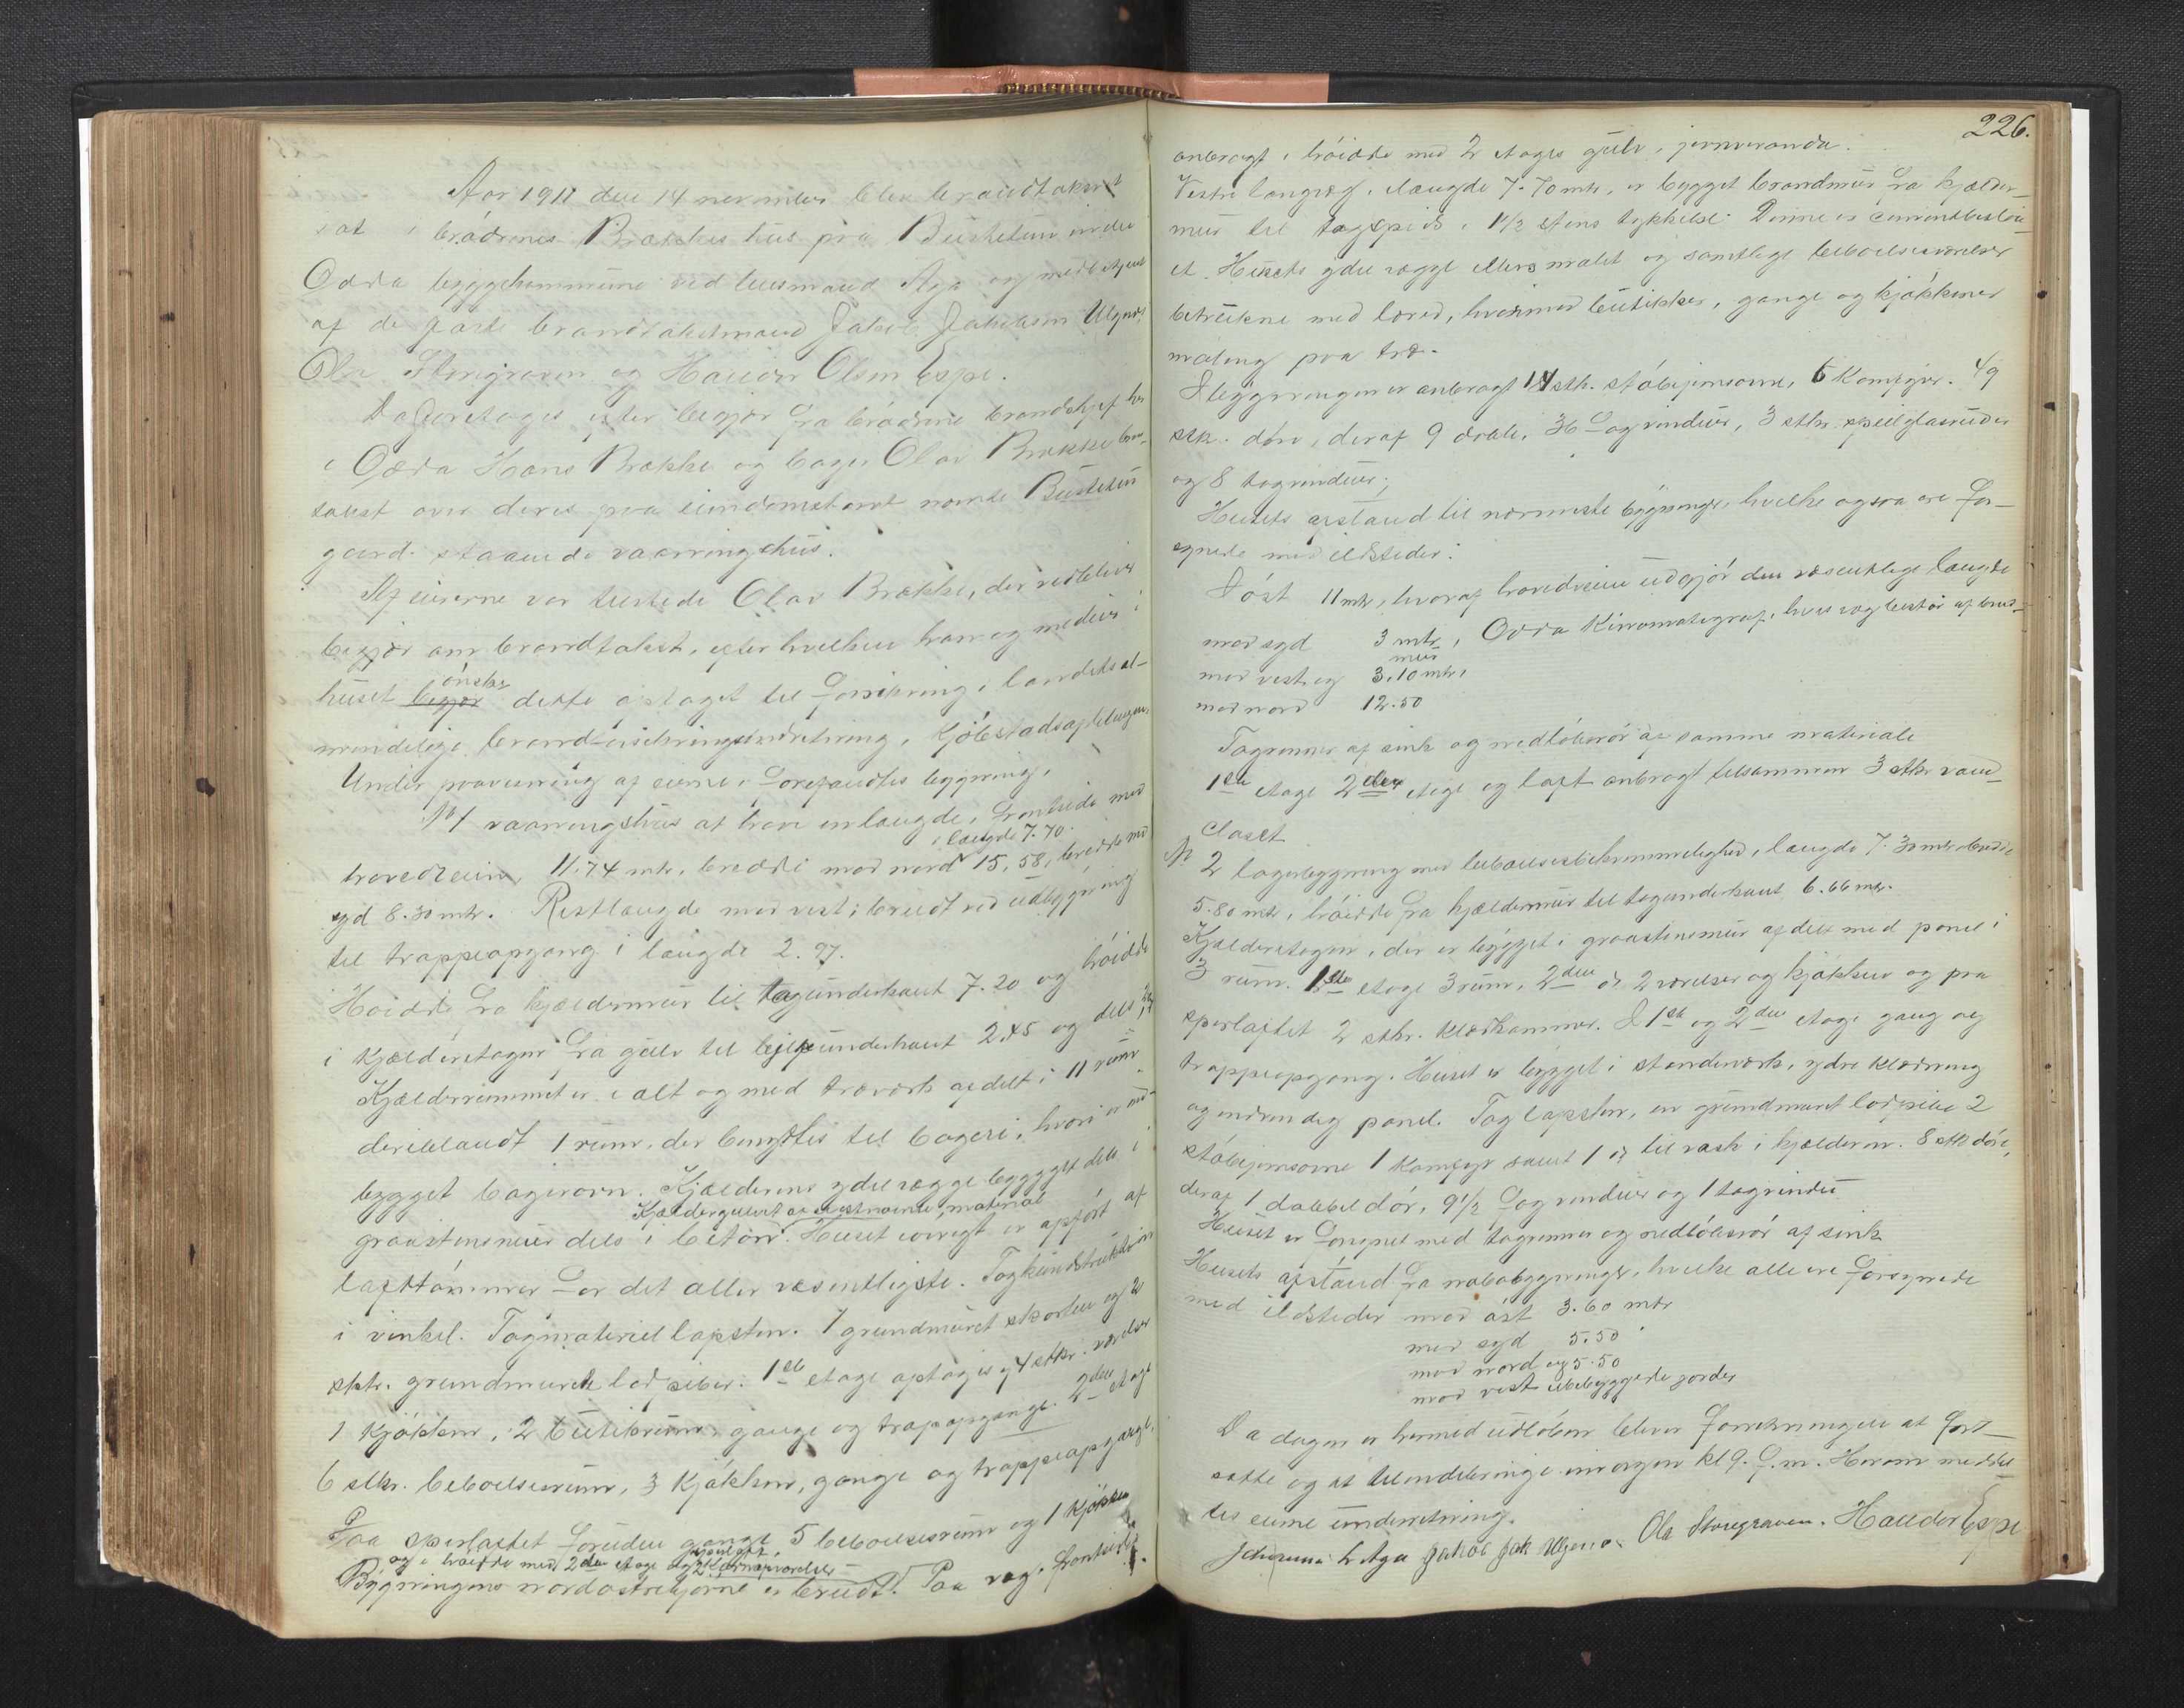 Aar 1911 den 14 november blev brandtakst
sat i brødrenes Brækkes hus paa Bustetun inden
Odda bygge kommune ved lensmand Aga og medbetjent
af de faste brandtakstmænd Jakob Jakobsen Ulgenes,
Ola Storegraven og Haldor Olsen Espe.
Da foretoges efter begjær fra brødrene brandchef her
i Odda Hans Brække og bager Olav Brække bran-
takst over deres paa eiendomstomt nævnte Bustetun
gaard staaende vaaningshus.
Af eierne var tilstede Olav Brække, der vedblever
begjær om brandtakst, efter hvilken han og medeier i
huset begjær ønsker dette optaget til forsikring i landets al-
mindelige brandforsikringsindretning, Kjøbstadsafdelingen.
Under paavisning af eierne i forefandtes bygning,
No 1 vaaningshus at have en længde, frontside mod
hovedveien, 11.74 mtr, bredde mod nord i længde 7.70. 15,58, bredde mod
syd 8.30 mtr. Restlængde mod vest; brudt ved udbygning
til trappeopgang i længde 2.97.
Høide fra kjældermur til tagunderkant 7.20 og høide
i kjælderetagen fra gulv til bjelkeunderkant 2.45 og dels
Kjælderrummet er i alt og med træverk afdelt i 11 rum
deriblandt 1 rum, der benyttes til bageri, hvori er ind-
bygget bagerovn. Kjælderens ydre vægge bygget dels i
graastensmur dels i beton. Kjældergulvet af sistnævnte material Huset iøvrigt er opført af
lafttømmer for det aller væsentligste. Tagkonstruktion
i vinkel. Tagmateriel lapsten. 1 grundmuret skorsten og 2
stkr. grundmuret lodpiber. 1ste etage optages af 4 stkr. værelser
1 kjøkken, 2 butikrum, gange og trapopgange. 2den etage
6 stkr. beboelsesrum, 3 kjøkken, gange og trappeopgange.
Paa sperloftet foruden gange 5 beboelsesrum og 1 kjøkken
og i høide med 2den etage
Bygningens nordøstrehjørne er brudt. Paa væg. frontside
226.
anbragt i høide med 2 etages gulv, jernveranda.
Vestre langvæg, længde 7.70 mtr, er bygget brandmur fra kjælder-
mur til tagspids i 1½ stens tykkelse. Denne er cementbeslaa-
et. Husets ydre vægge ellers malet og samtlige beboelsesværelser
betrukne med lered, hvorimod butikker, gange og kjøkkener
maling paa træ.
I bygningen er anbragt 14 stk. støbejernsovne, 6 Komfyrer. 49
stk. døre, deraf 9 doble, 36 fagvinduer, 3 stkr speilglasruder
og 8 tagvinduer;
Husets afstand til nærmeste bygninger, hvilke ogsaa ere for-
synede med ildsteder:
I øst 11 mtr, hvoraf hovedveien udgjør den væsentlige længde
mod syd 3 mtr, Odda Kinomatograf, hvis væg bestaar af brand-
mur
mod vest og 3.10 mtr,
mod nord 12.50
Tagrenner af sink og nedløbsrør af samme materiale
1ste etage 2den etage og loft anbragt tilsammen 3 stkr vand-
closet
No 2 lagerbygning med beboelsesbekvemmelighed, længde 7.30 mtr bredde
5.80 mtr, høide fra kjældermur til tagunderkant 6.66 mtr.
Kjælderetagen, der er bygget i graastensmur afdelt med panel i
3 rum. 1ste etage 3 rum, 2den do 2 værelser og kjøkken og paa
sperloftet 2 stkr. klædkammer. I 1ste og 2den etage gang og
trappeopgang. Huset er bygget i stenderverk, ydre klædning
og indvendig panel. Tag lapsten, en grundmuret lodpibe 2
støbejernsovne 1 Komfyr samt 1 do til vask i kjælderen. 8 stk døre,
deraf 1 dobbeldør, 9½ fagvinduer og 1 tagvindu
Huset er forsynet med tagrenner og nedløbsrør af sink
Husets afstand fra nabobygninger, hvilke alle ere forsynede
med ildsteder mod øst 3.60 mtr
mod syd 5.50
mod nord og 5.50
mod vest ubebyggede jorder
Da dagen er hermed udløben blever forretningen at fort-
sætte og at tilendebringe imorgen kl 9. f.m. Herom meddel-
tes eierne underretning.
L Aga Jakob Jak Ulgenes Ola Storegraven. Haldor Espe